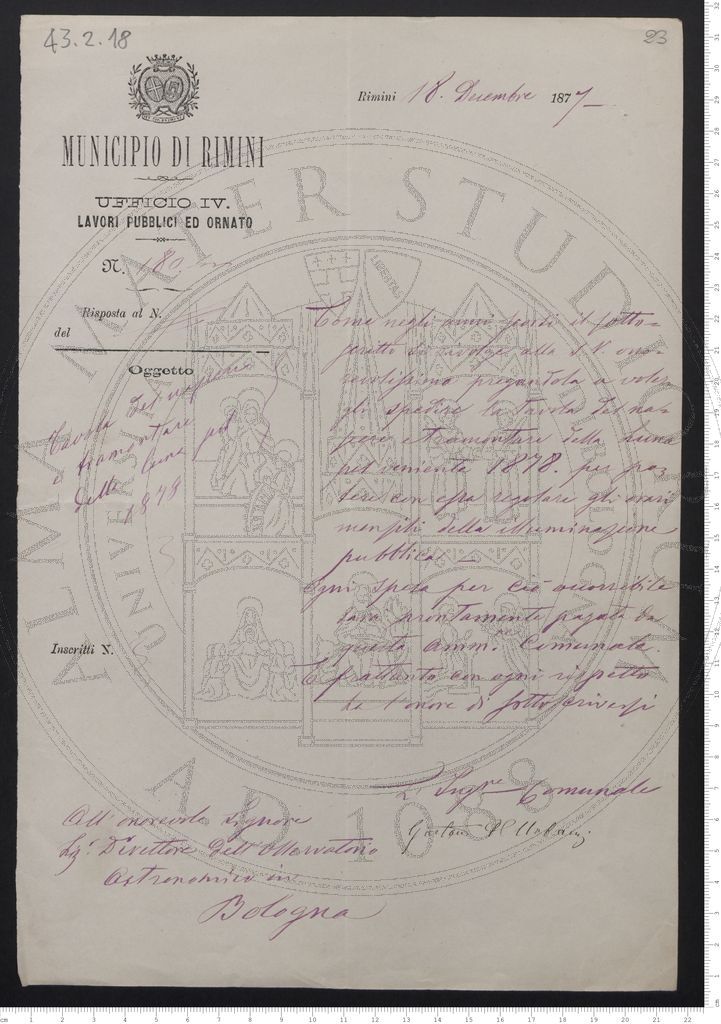 43.2.18
23
Rimini 18. Decembre 1877
MUNICIPIO DI RIMINI
UFFICIO IV.
LAVORI PUBBLICI ED ORNATO
N. 180
Risposta al N.
del
Oggetto
Tavola del nascere
e tramontare
della luna pel
1878
Come negli anni scorsi il sotto=
scritto si rivolge alla S.V. ono=
revolissima pregandola a voler
gli spedire la tavola del na=
scere e tramontare della Luna
pel veniente 1878. per po=
tere con essa regolare gli orari
mensili della illuminazione
pubblica. —
Ogni spesa per ciò occorribile
sarà prontamente pagata da
questa Amm.ne Comunale.
E frattanto con ogni rispetto
ha l'onore di sottoscriversi
Inscritti N.
L'Ingre Comunale
Gaetano
All'onorevole Signore
Sig.r Direttore dell'Osservatorio
Astronomico in
Bologna
ALMA MATER STUDIORUM
A.D. 1088
LIBERTAS
cm 1 2 3 4 5 6 7 8 9 10 11 12 13 14 15 16 17 18 19 20 21 22